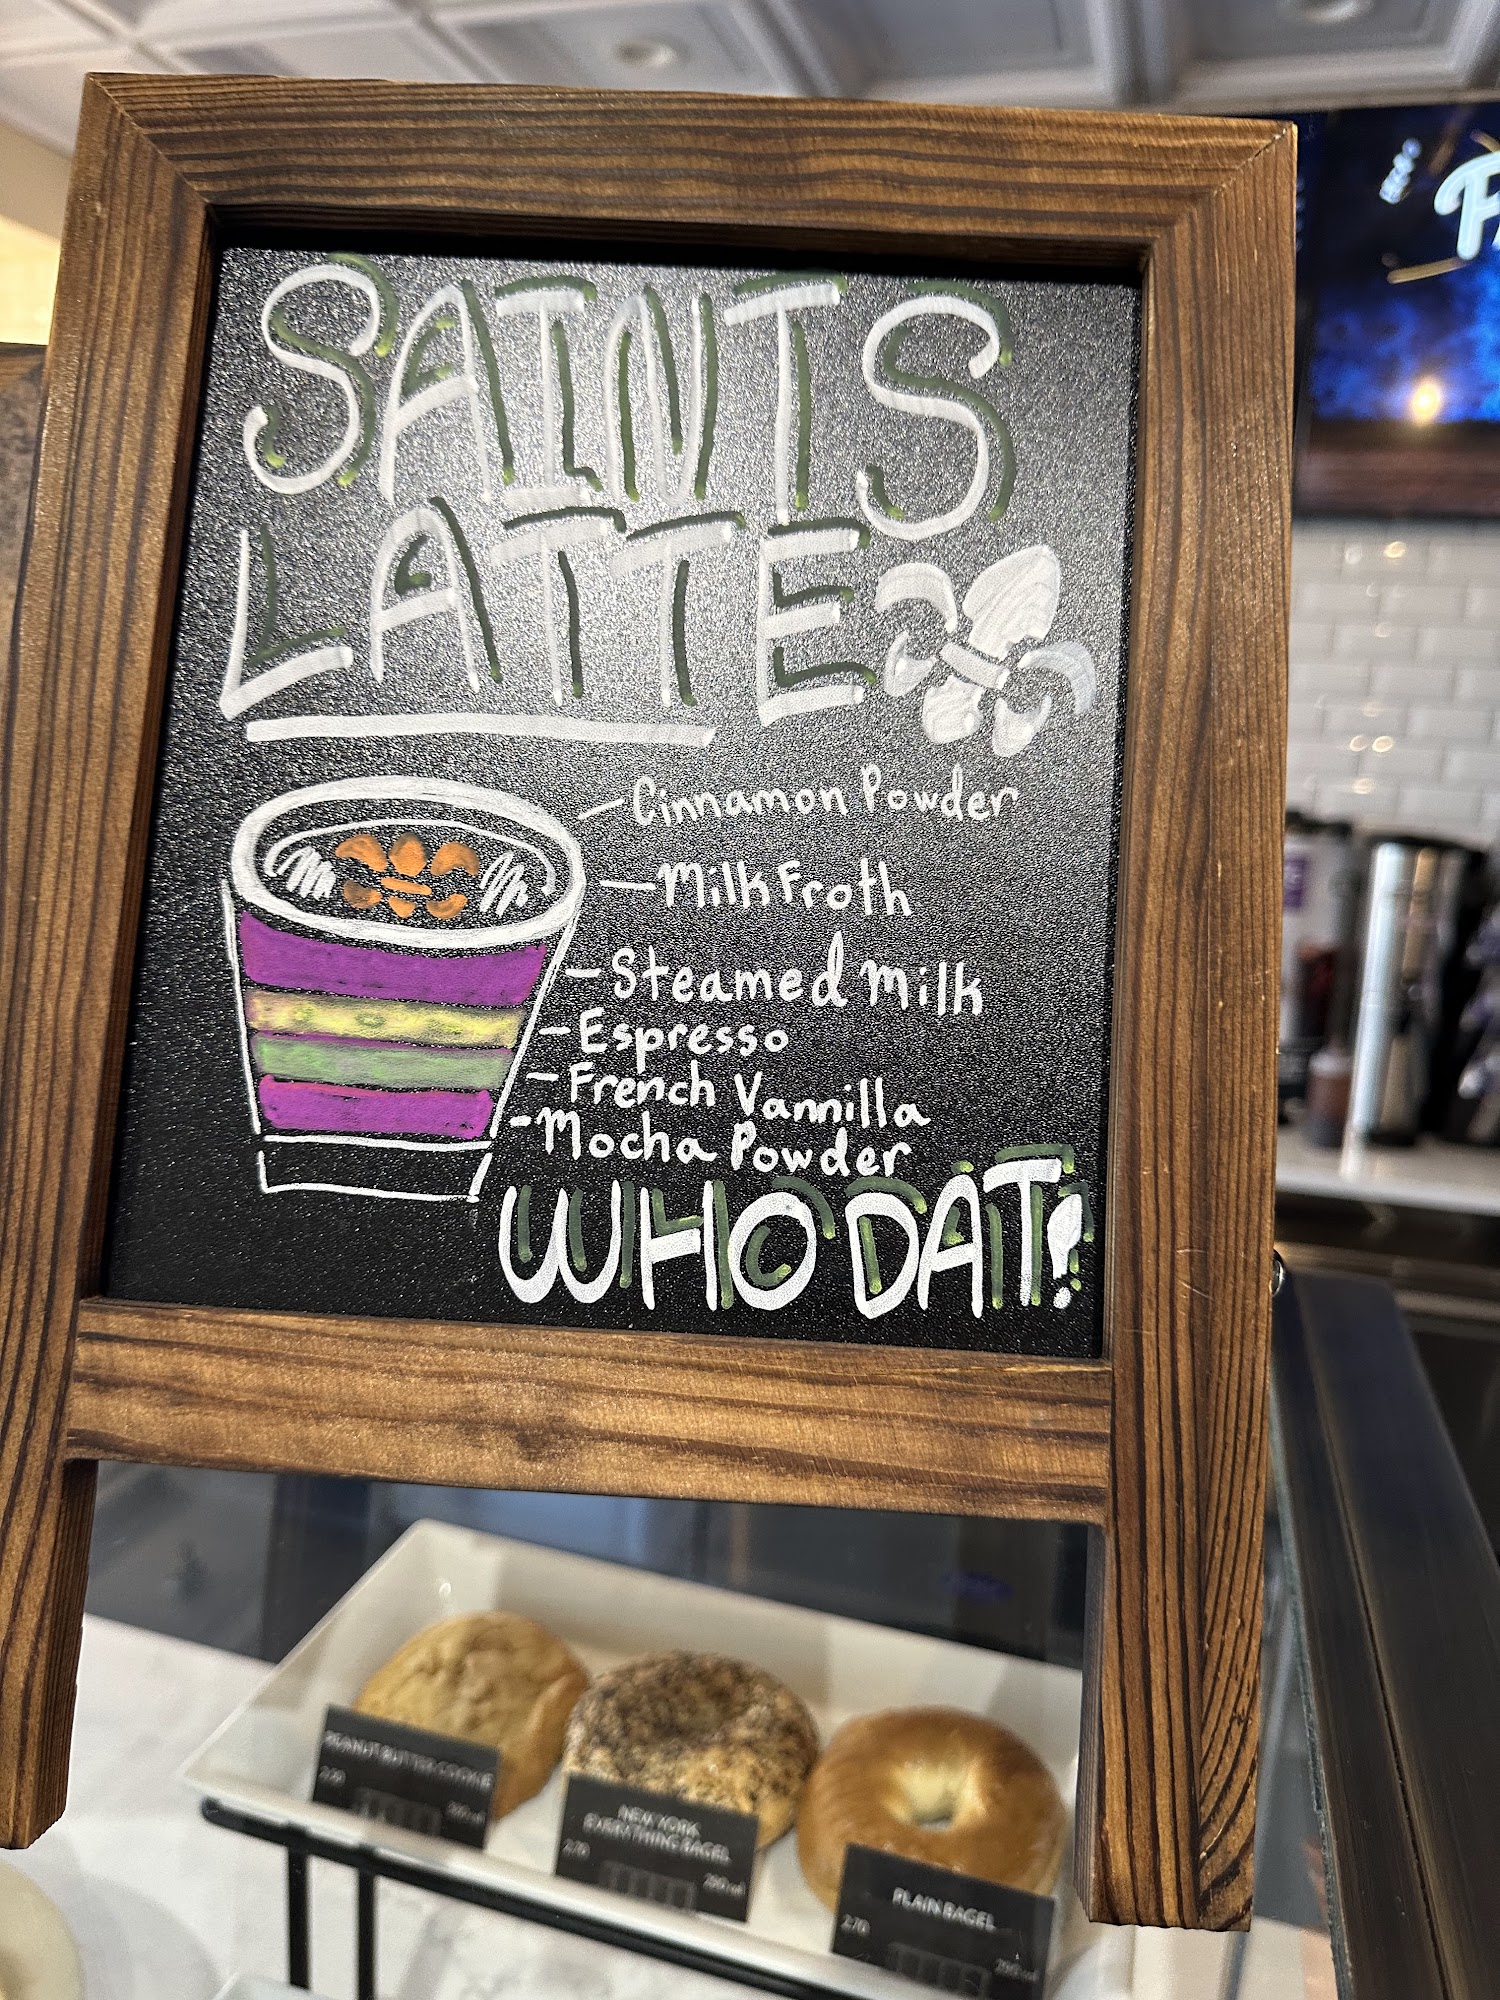 SAINTS
LATTE
- Cinnamon Powder
- Milk Froth
- Steamed Milk
- Espresso
- French Vannilla
- Mocha Powder
WHO DAT!
PEANUT BUTTER COOKIE
NEW YORK
EVERYTHING BAGEL
2.70
PLAIN BAGEL
2.70